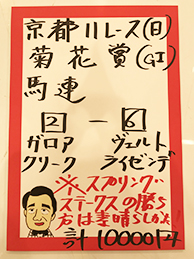 京都11レース(日)
菊花賞(GI)
馬連
2-6
ガロア ヴェルト
クリーク ライゼンデ
※スプリング
ステークスの勝ち
方は素晴らしかよ
計10000円